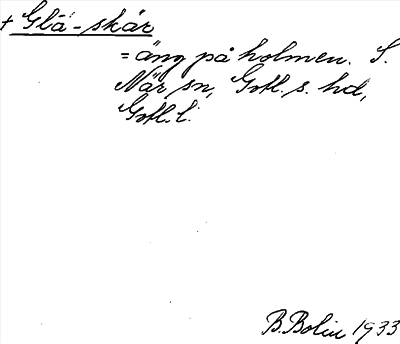 + Glä-skär
= äng på holmen. S.
När sn, Gotl. s. hd,
Gotl. l.
B. Bolin 1933